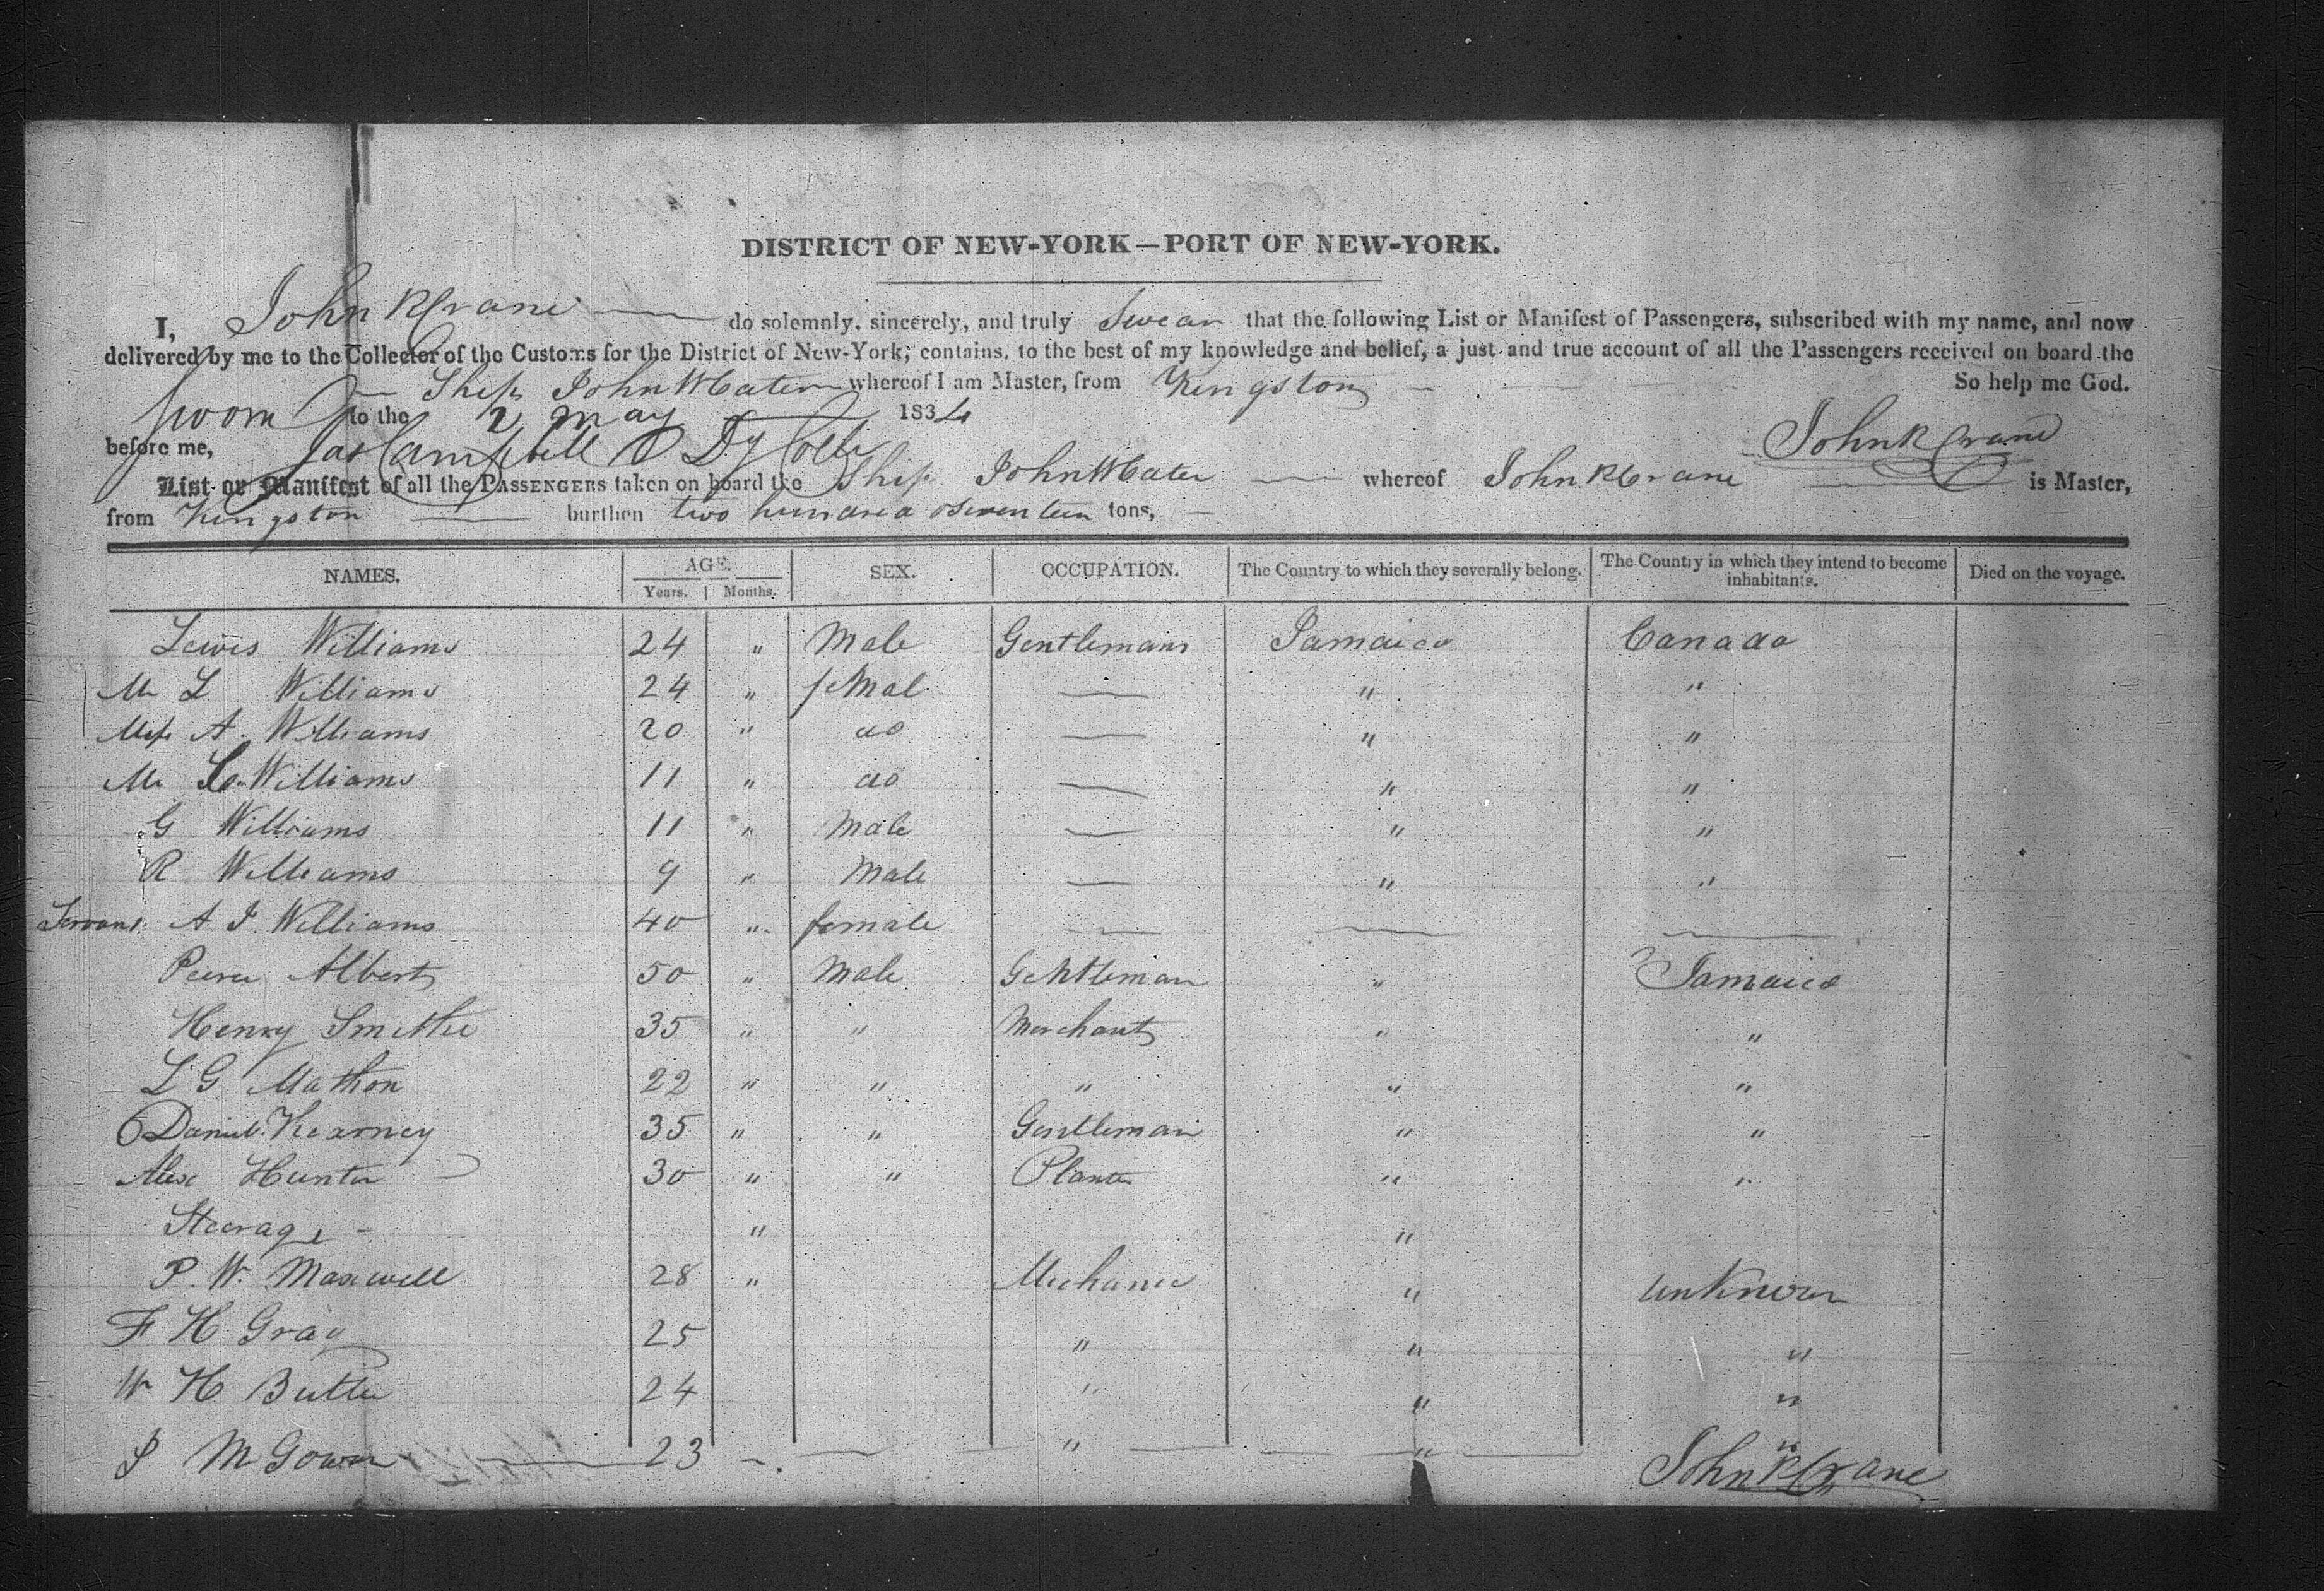 DISTRICT OF NEW-YORK—PORT OF NEW-YORK.
I, John R Crane do solemnly, sincerely, and truly Swear that the following List or Manifest of Passengers, subscribed with my name, and now
delivered by me to the Collector of the Customs for the District of New-York, contains, to the best of my knowledge and belief, a just and true account of all the Passengers received on board the
Ship John W Cater whereof I am Master, from Kingston So help me God.
Sworn to the 2 May 1834
before me, Jas Campbell Dy Coll John R Crane
List or Manifest of all the PASSENGERS taken on board the Ship John W Cater whereof John R Crane is Master,
from Kingston burthen two hundred seventeen tons,
NAMES. AGE. SEX. OCCUPATION. The Country to which they severally belong. The Country in which they intend to become inhabitants. Died on the voyage.
Years. Months.
Lewis Williams 24 " Male Gentleman Jamaica Canada
M L Williams 24 " feMal — " "
Miss A. Williams 20 " do — " "
M Williams 11 " do — " "
G Williams 11 " Male — " "
R Williams 9 " Male — " "
Servant A J. Williams 40 " female — — —
Albert 50 " Male Gentleman " Jamaica
Henry Smithe 35 " " Merchant " "
L G Mathon 22 " " " " "
Daniel Kearney 35 " " Gentleman " "
Alex Hunter 30 " " Planter " "
Steerage - " "
P. W. Maxwell 28 " Mechanic " unKnown
F H Gray 25 " " "
W H Butler 24 " " "
M Gowan 23 — " — " — "
John R Crane